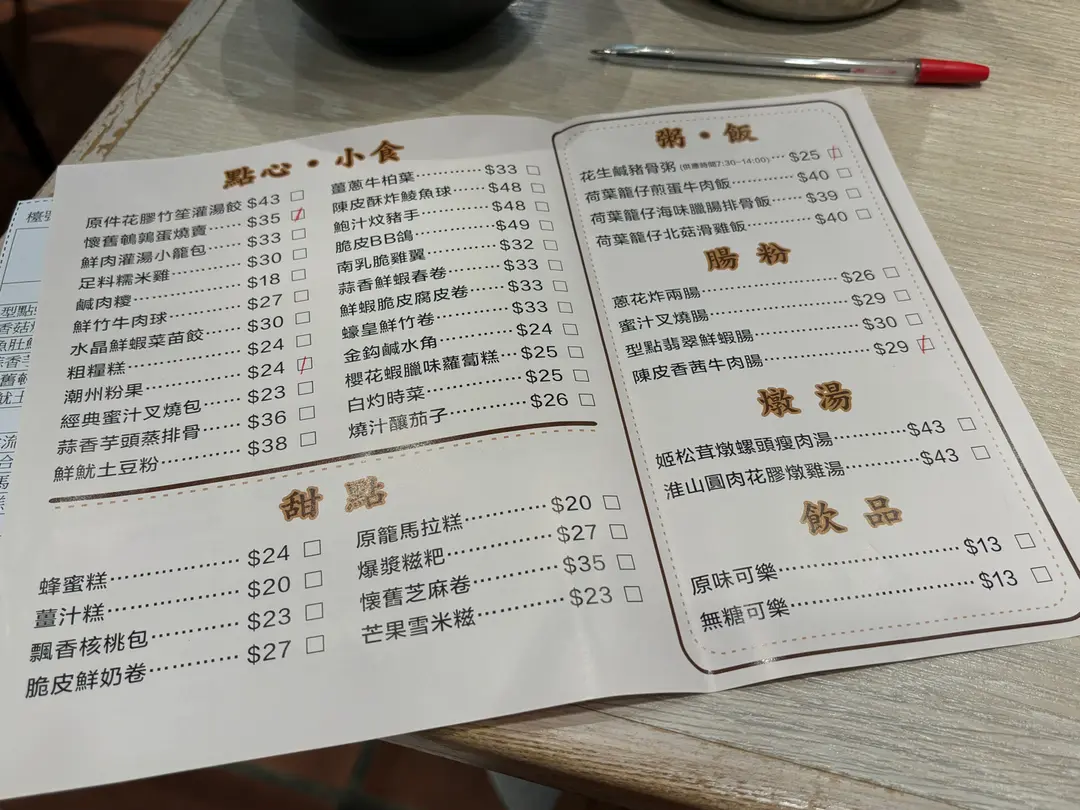 點心・小食
原件花膠竹笙灌湯餃 $43
懷舊鵪鶉蛋燒賣 $35
鮮肉灌湯小籠包 $33
足料糯米雞 $30
鹹肉糭 $18
鮮竹牛肉球 $27
水晶鮮蝦菜苗餃 $30
粗糧糕 $24
潮州粉果 $24
經典蜜汁叉燒包 $23
蒜香芋頭蒸排骨 $36
鮮魷土豆粉 $38
薑蔥牛柏葉 $33
陳皮酥炸鯪魚球 $48
鮑汁炆豬手 $48
脆皮BB鴿 $49
南乳脆雞翼 $32
蒜香鮮蝦春卷 $33
鮮蝦脆皮腐皮卷 $33
蠔皇鮮竹卷 $33
金鈎鹹水角 $24
櫻花蝦臘味蘿蔔糕 $25
白灼時菜 $25
燒汁釀茄子 $26
甜點
蜂蜜糕 $24
薑汁糕 $20
飄香核桃包 $23
脆皮鮮奶卷 $27
原籠馬拉糕 $20
爆漿糍粑 $27
懷舊芝麻卷 $35
芒果雪米糍 $23
粥・飯
花生鹹豬骨粥 (供應時間7:30-14:00) $25
荷葉籠仔煎蛋牛肉飯 $40
荷葉籠仔海味臘腸排骨飯 $39
荷葉籠仔北菇滑雞飯 $40
腸粉
蔥花炸兩腸 $26
蜜汁叉燒腸 $29
型點翡翠鮮蝦腸 $30
陳皮香茜牛肉腸 $29
燉湯
姬松茸燉螺頭瘦肉湯 $43
淮山圓肉花膠燉雞湯 $43
飲品
原味可樂 $13
無糖可樂 $13